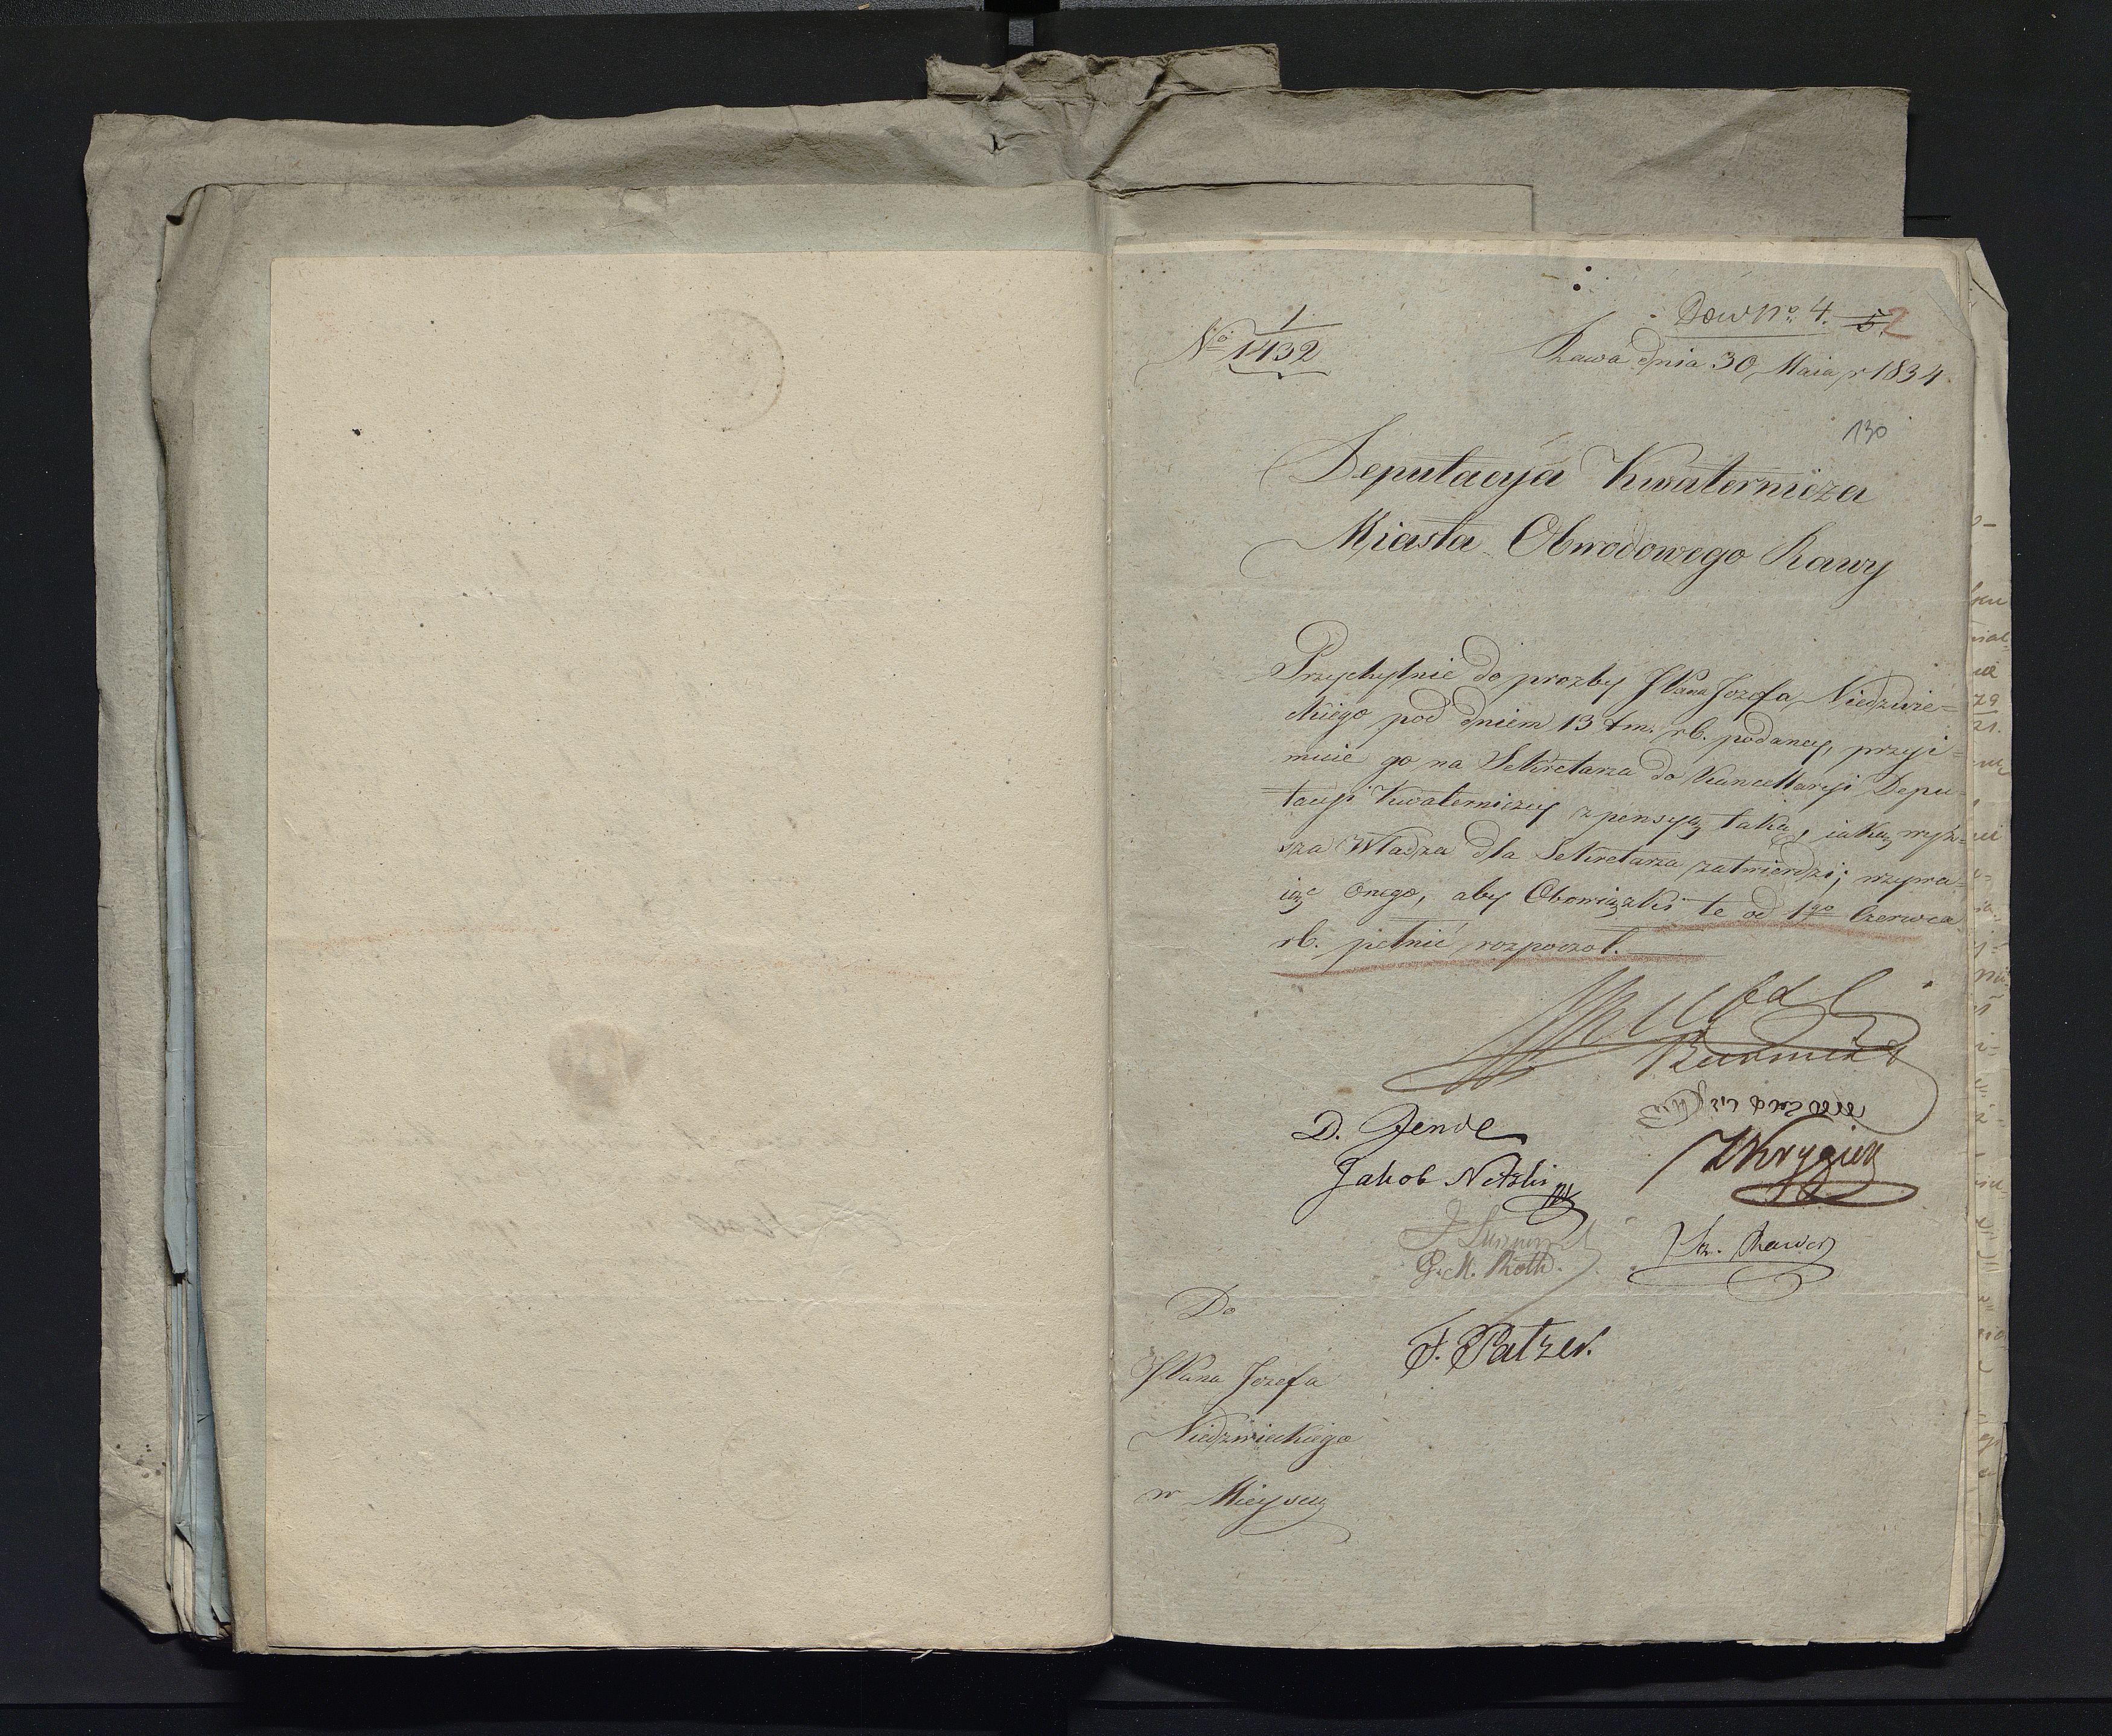 Dow No 4. 5. 2
No 1/1432
Rawa dnia 30 Maia r 1834
130
Deputacyá Kwaternicza
Miasta Obwodowego Rawy
Przychylnie do prozby JPana Jozefa Niedzwie=
ckiego pod dniem 13 tm. rb. podaney, przyi=
muie go na Sekretarza do Kancellaryi Depu=
tacyi Kwaterniczey z pensyą taką, iaką wyż=
sza Władza dla Sekretarza zatwierdzi; wzywa=
iąc onego, aby Obowiązki te od 1go Czerwca
rb. pełnić rozpoczoł.
Burmistrz
D. Zende
Jakob Netzki
G. M. Roth.
F. Patzer.
Do
JPana Jozefa
Niedzwieckiego
w Mieyscu